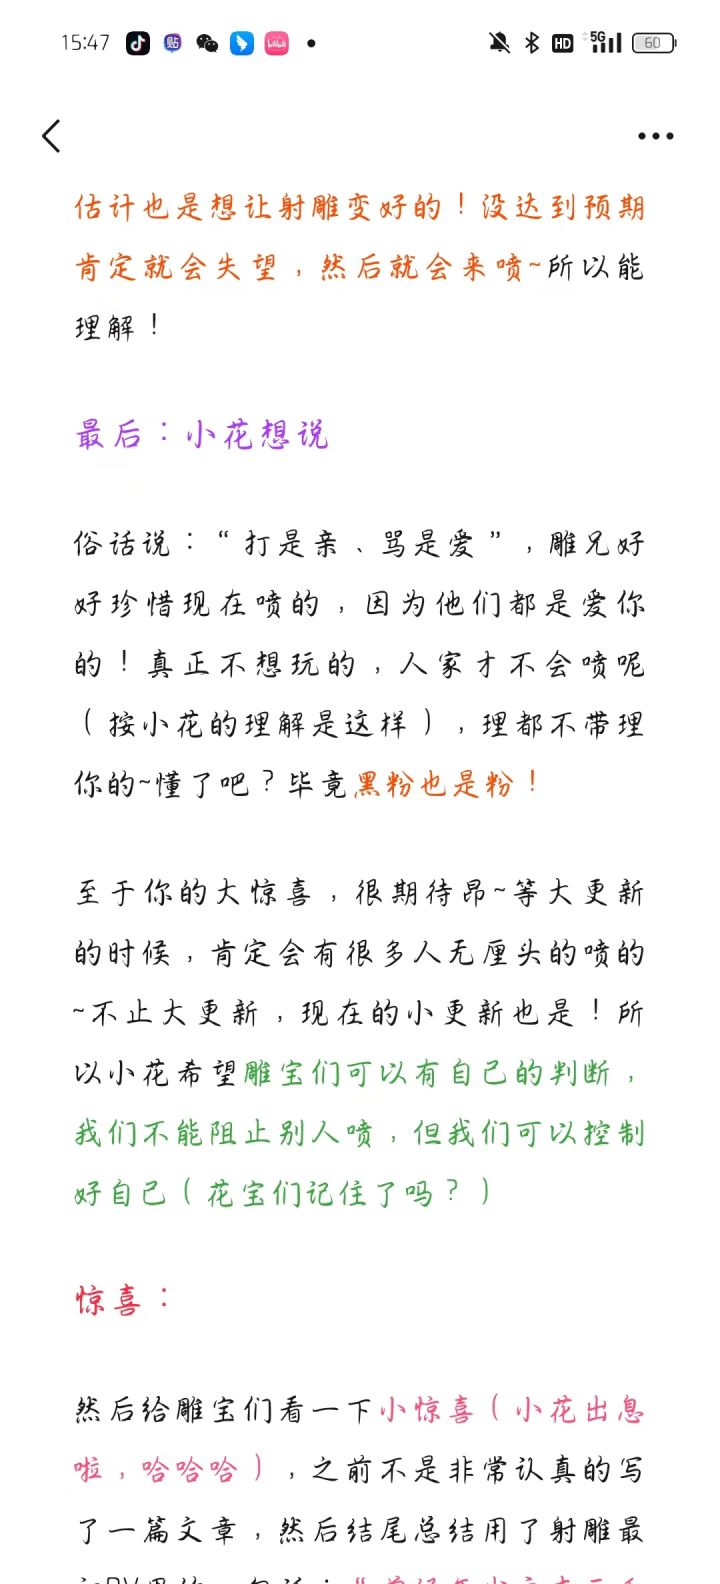 15:47
贴
HD
5G
60
估计也是想让射雕变好的！没达到预期
肯定就会失望，然后就会来喷~所以能
理解！
最后：小花想说
俗话说：“打是亲、骂是爱”，雕兄好
好珍惜现在喷的，因为他们都是爱你
的！真正不想玩的，人家才不会喷呢
（按小花的理解是这样），理都不带理
你的~懂了吧？毕竟黑粉也是粉！
至于你的大惊喜，很期待昂~等大更新
的时候，肯定会有很多人无厘头的喷的
~不止大更新，现在的小更新也是！所
以小花希望雕宝们可以有自己的判断，
我们不能阻止别人喷，但我们可以控制
好自己（花宝们记住了吗？）
惊喜：
然后给雕宝们看一下小惊喜（小花出息
啦，哈哈哈），之前不是非常认真的写
了一篇文章，然后结尾总结用了射雕最